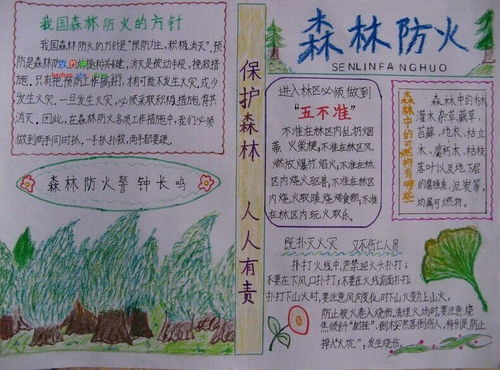 我国森林防火的方针
我国森林防火的方针是"预防为主,积极消灭".预
防是森林防火的前提和关键,消灭是被动手段,挽救措
施.只有把预防工作搞好,才有可能不发生火灾,或少
发生火灾.一旦发生火灾,必须采取积极措施,将其
消灭.因此,在森林防火各项工作措施中,我们必须
做到两手同时抓,一手抓扑救,两手都要硬.
森林防火警钟长鸣
保护森林 人人有责
森林防火
SENLINFANGHUO
进入林区必须做到
"五不准"
不准在林区内乱扔烟
蒂、火柴梗,不准在林区
燃放爆竹、焰火,不准在林区
内烧火驱兽,不准在林区
内烧火取暖、烧烤食物,不准
在林区内玩火取乐.
森林中的可燃物有哪些
森林中的
灌木杂草、藏草、
苔藓、地衣、枯立
木、腐朽木、枯枝
落叶以及地下层
的腐殖质、泥炭等,
均属可燃物.
既扑灭火灾 又不伤亡人员
扑打火线中,严禁迎火头扑打;
不要在下风口扑打;不要在火线前面扑打;
扑打下山火时,要注意风向变化,时下山火变为上山火,
防止被火卷入烧伤.清理火场时,要注意烧
焦倾斜"树挂".倒木突然落倒伤人,特别是防止
掉入"火坑",发生烧伤.